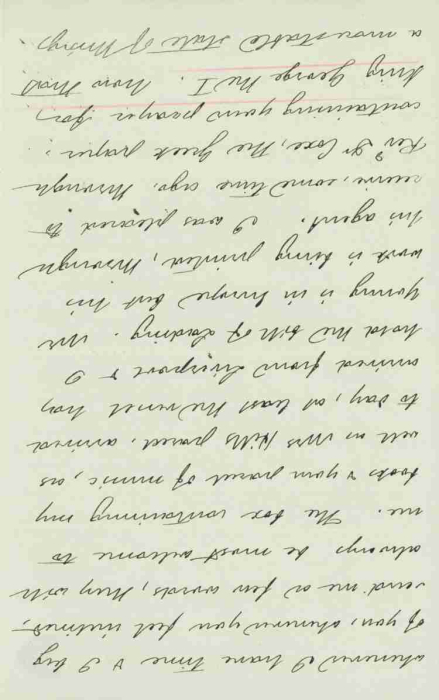 whenever I have time & I beg
of you, whenever you feel inclined,
send me a few words, they will
always be most welcome to
me. The box containing my
books & your parcel of music, as
well as Mrs Hills parcel, arrived
to day, at least the vessel has
arrived from Liverpool & I
hold the bill of Lading. Mr
Young is in Europe but his
work is being printed, through
his agent. I was pleased to
receive, some time ago, through
Revd Dr Coxe, the Greek paper
containing your prayer for
King George the I. Now that
a more stable state of things